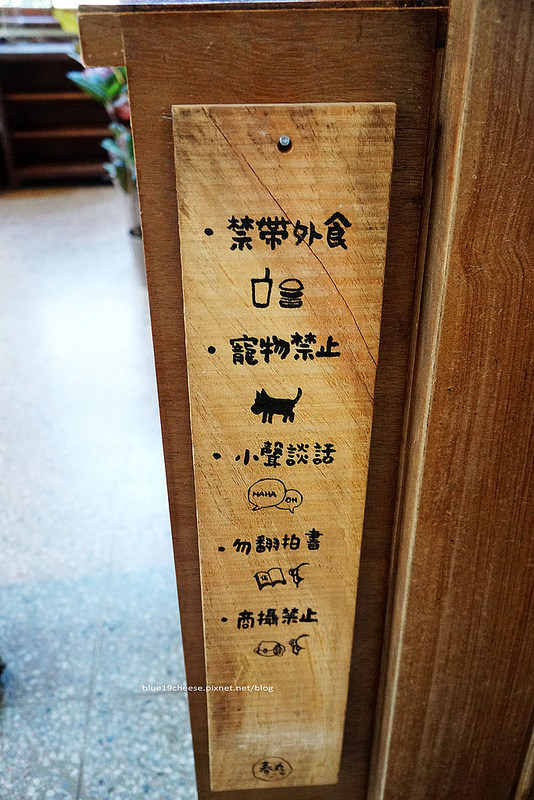 • 禁帶外食
• 寵物禁止
• 小聲談話
HAHA OH
• 勿翻拍書
• 商攝禁止
blue19cheese.pixnet.net/blog